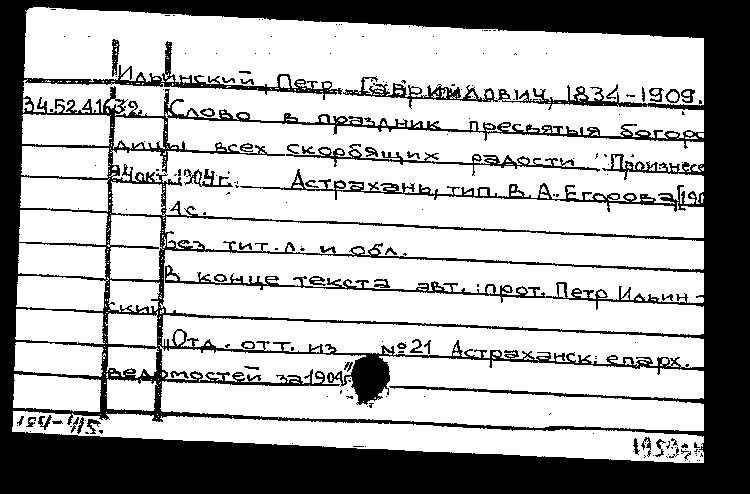 Ильинский, Петр Гаврилович, 1834-1909.
34.52.4.1632. Слово в праздник пресвятыя богоро
дицы всех скорбящих радости "Произнесе
24 окт. 1904 г. Астрахань, тип. В. А. Егорова [190
4 с.
Без тит. л. и обл.
В конце текста авт.: прот. Петр Ильин-
ский.
"Отд. отт. из №21 Астраханск. епарх.
ведомостей за 1904 г."